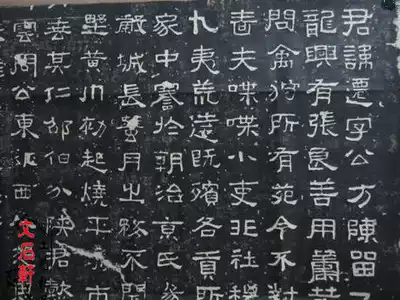 君諱遷字公方陳留
龍興有張良善用籌
問禽狩所有苑令不對
嗇夫喋喋小吏非社稷
九夷荒遠既殯各貢所
家中謇於朝治京氏易
穀城長蚕月之務不閉
野黃巾初起燒平城市
垂其仁邵伯分陝君懿
雲周公東征西人
文石軒